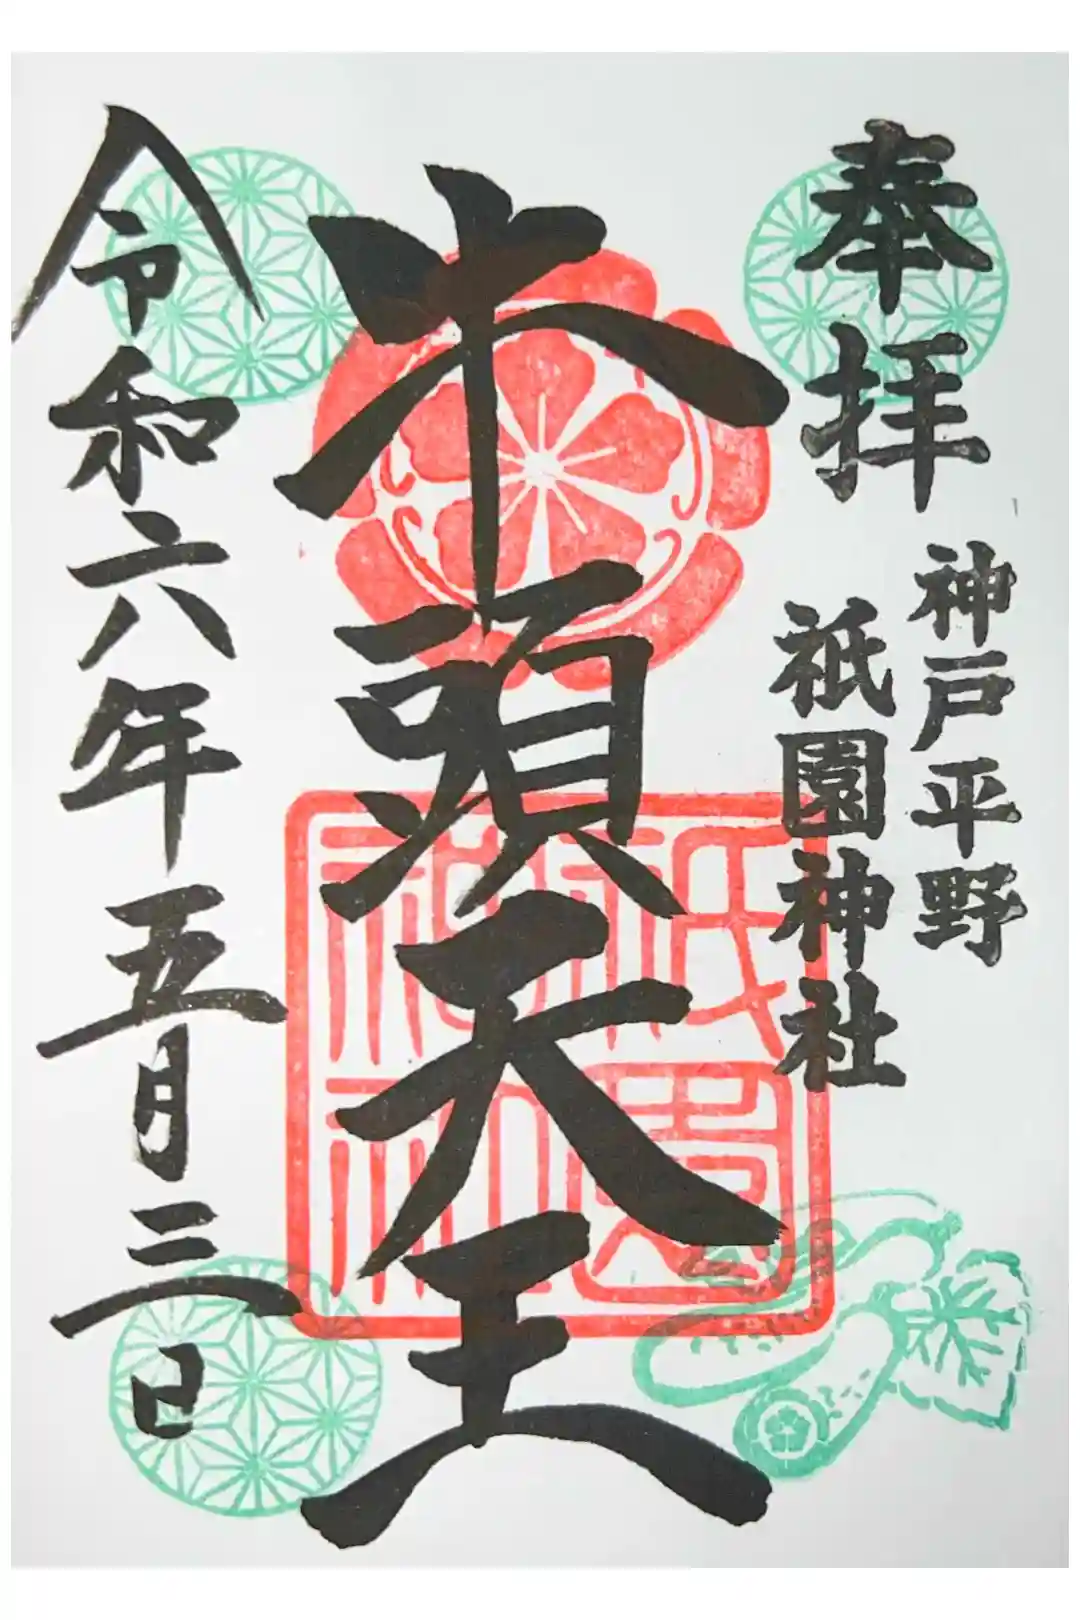 奉拝
神戸平野
祇園神社
牛頭天王
祇園
神社
令和六年五月三日